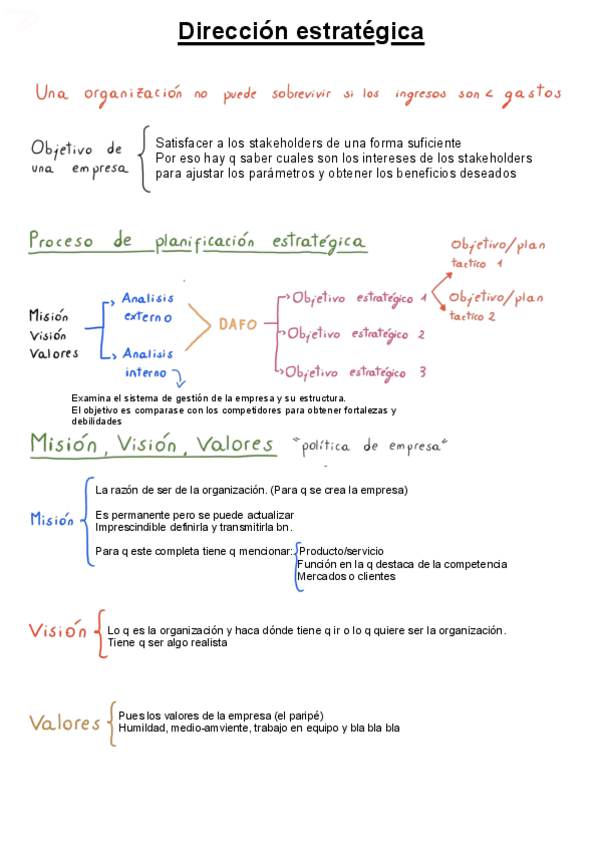 Dirección estratégica
Una organización no puede sobrevivir si los ingresos son < gastos
Objetivo de
una empresa
Satisfacer a los stakeholders de una forma suficiente
Por eso hay q saber cuales son los intereses de los stakeholders
para ajustar los parámetros y obtener los beneficios deseados
Proceso de planificación estratégica
Objetivo/plan
tactico 1
Objetivo/plan
tactico 2
Misión
Visión
Valores
Analisis
externo
Analisis
interno
DAFO
Objetivo estratégico 1
Objetivo estratégico 2
Objetivo estratégico 3
Examina el sistema de gestión de la empresa y su estructura.
El objetivo es comparase con los competidores para obtener fortalezas y
debilidades
Misión, Visión, Valores "política de empresa"
Misión
La razón de ser de la organización. (Para q se crea la empresa)
Es permanente pero se puede actualizar
Imprescindible definirla y transmitirla bn.
Para q este completa tiene q mencionar: Producto/servicio
Función en la q destaca de la competencia
Mercados o clientes
Visión
Lo q es la organización y haca dónde tiene q ir o lo q quiere ser la organización.
Tiene q ser algo realista
Valores
Pues los valores de la empresa (el paripé)
Humildad, medio-amviente, trabajo en equipo y bla bla bla